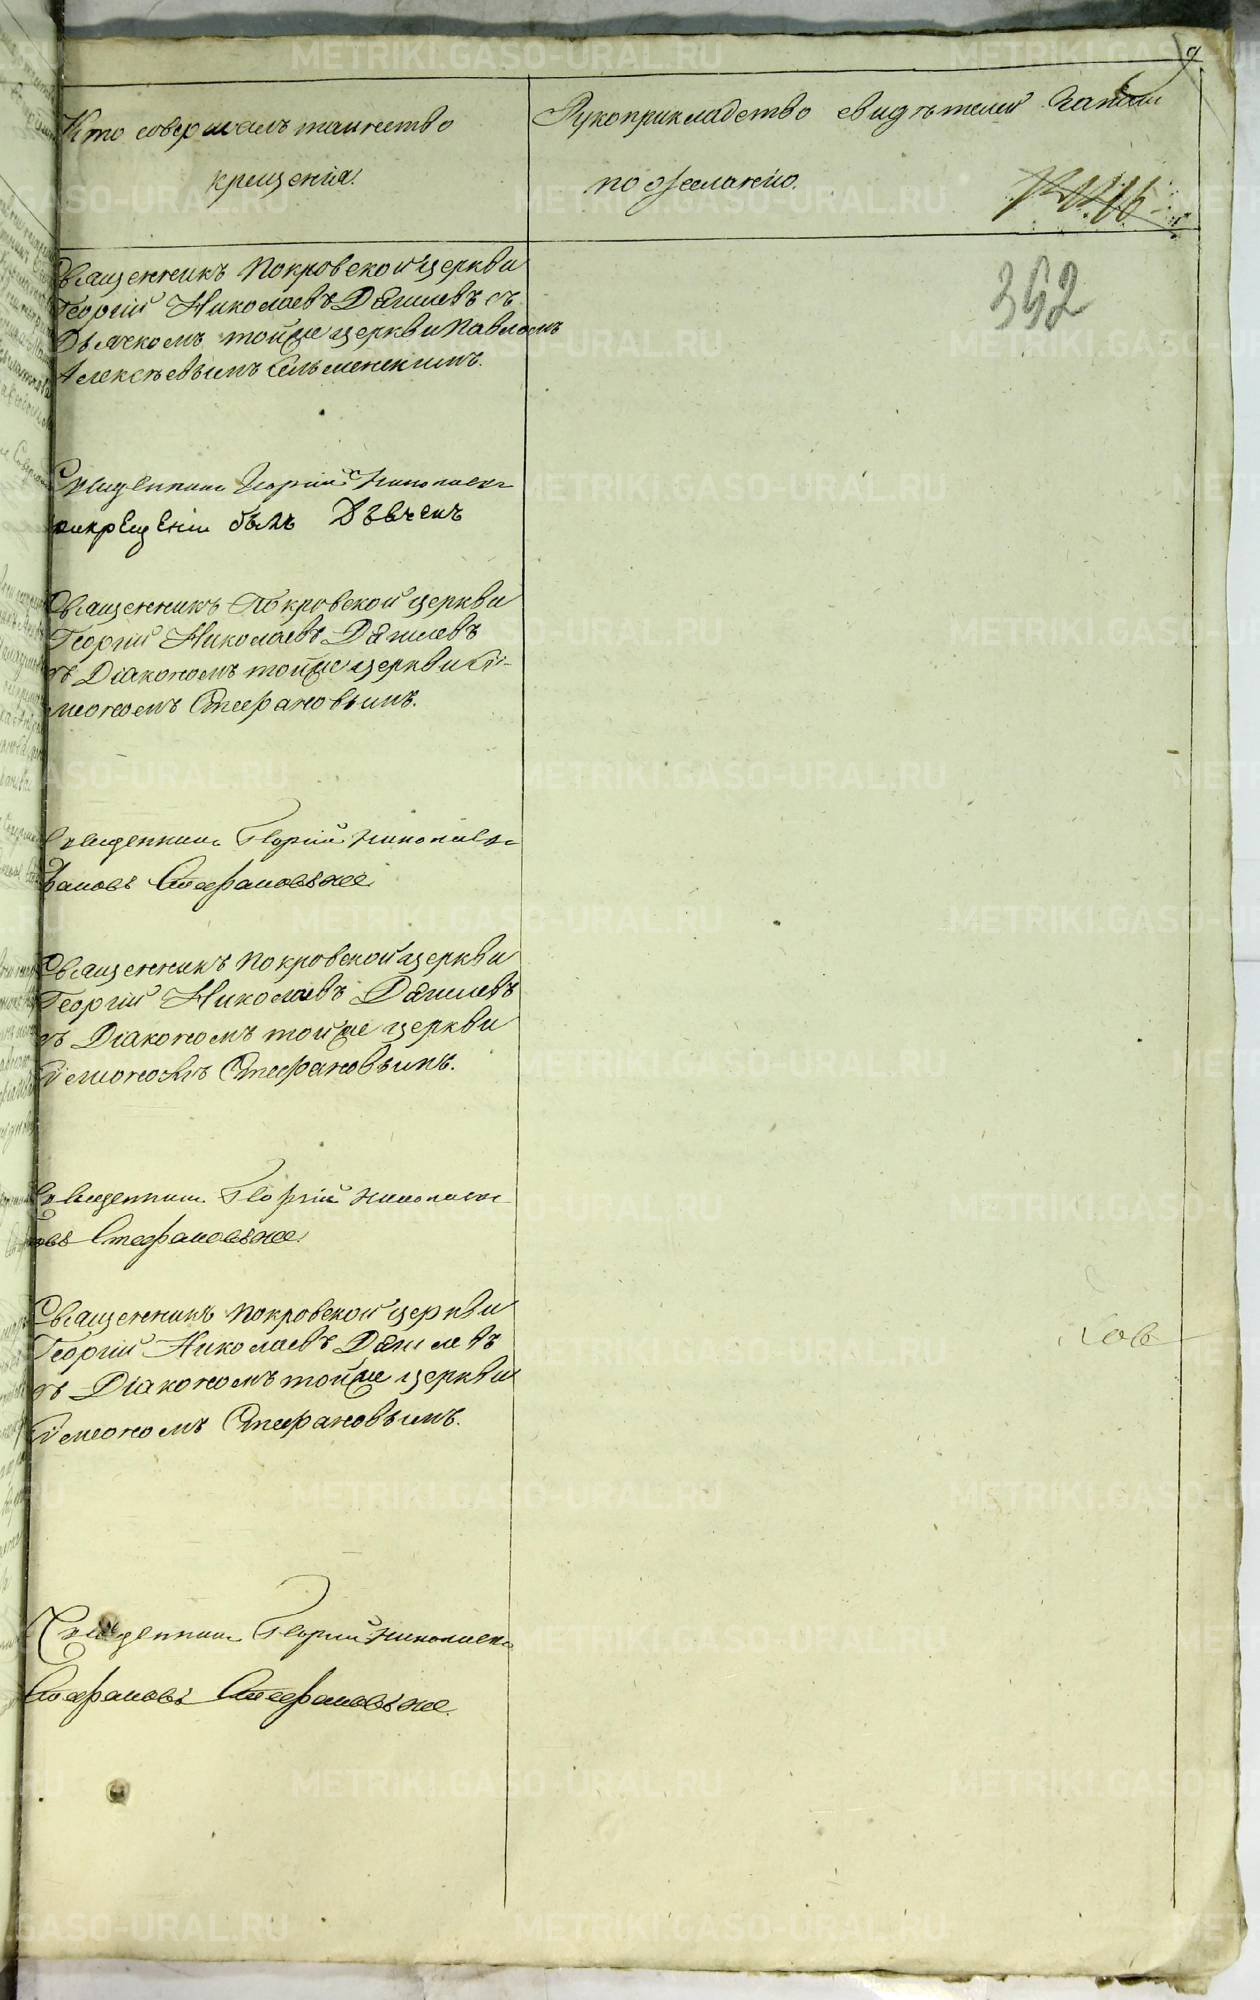 9
Кто совершалъ таинство
крещенія.
Рукоприкладство свидѣтелей
по желанію.
362
Священникъ Покровской церкви
Георгій Николаевъ Данилевъ съ
Дьячкомъ тойже церкви Павломъ
Алексѣевымъ
Священникъ Георгій Николаевъ
прикрещеніи былъ Дьячекъ
Священникъ Покровской церкви
Георгій Николаевъ Данилевъ
съ Діакономъ тойже церкви Си-
меономъ Стефановымъ.
Священникъ Георгій Николаевъ
Стефановъ
Священникъ Покровской церкви
Георгій Николаевъ Данилевъ
съ Діакономъ тойже церкви
Симеономъ Стефановымъ.
Священникъ Георгій Николаевъ
Священникъ Покровской церкви
Георгій Николаевъ Данилевъ
съ Діакономъ тойже церкви
Симеономъ Стефановымъ.
Священникъ Георгій Николаевъ
Стефановъ
METRIKI.GASO-URAL.RU